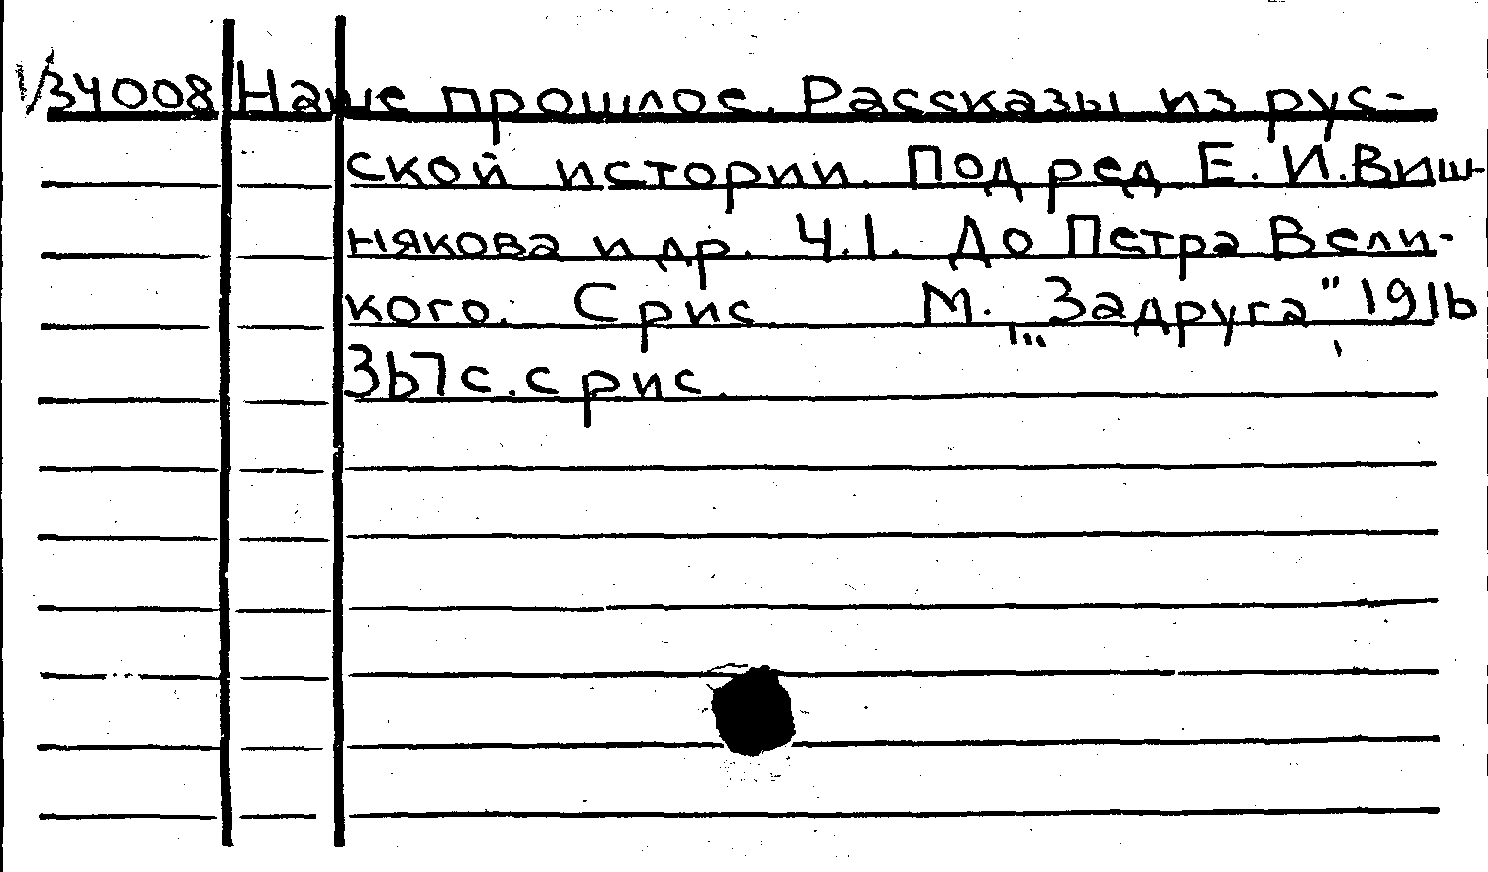 34008 Наше прошлое. Рассказы из рус-
ской истории. Под ред. Е. И. Виш-
някова и др. Ч.1. До Петра Вели-
кого. С рис. М. „Задруга", 1916
367 с. с рис.